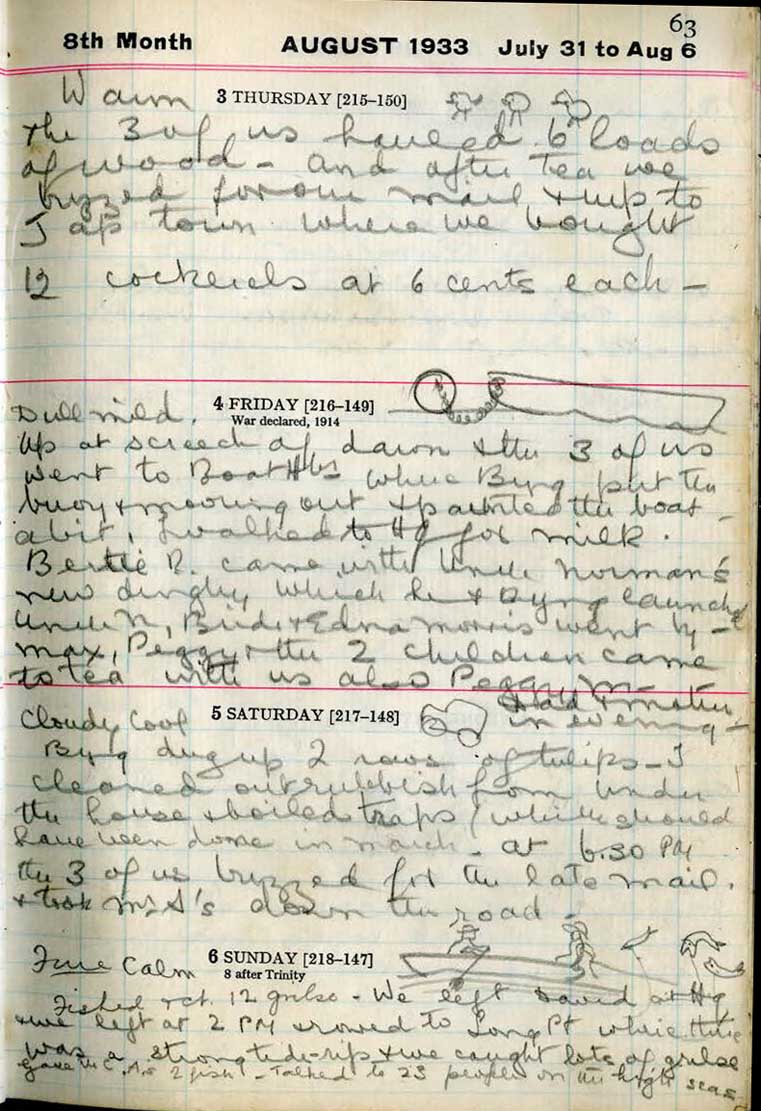 63
8th Month AUGUST 1933 July 31 to Aug 6
Warm 3 THURSDAY [215–150]
the 3 of us hauled 6 loads
of wood – and after tea we
buzzed for our mail & up to
Jap town where we bought
12 cockerels at 6 cents each –
Dull mild. 4 FRIDAY [216–149]
War declared, 1914
Up at screech of dawn & the 3 of us
went to Boat Hbs where Byng put the
buoy & mooring out & painted the boat –
a bit. I walked to HQ for milk.
Bertie R. came with Uncle Norman's
new dinghy which he & Byng launched
Uncle N, Birdi & Edna Morris went by –
Max, Peggy & the 2 children came
to tea with us also Peggy M –
in evening –
Cloudy Cool 5 SATURDAY [217–148]
Byng dug up 2 rows of tulips – I
cleaned out rubbish from under
the house & boiled traps (which should
have been done in March – at 6.30 PM
the 3 of us buzzed for the late mail.
& took Mrs A's down the road –
Fine Calm 6 SUNDAY [218–147]
8 after Trinity
Fished & ct. 12 grilse – We left David at HQ
& we left at 2 PM & rowed to Long Pt where there
was a strong tide-rip & we caught lots of grilse
Gave the C.A.s 2 fish! – Talked to 23 people on the high seas –